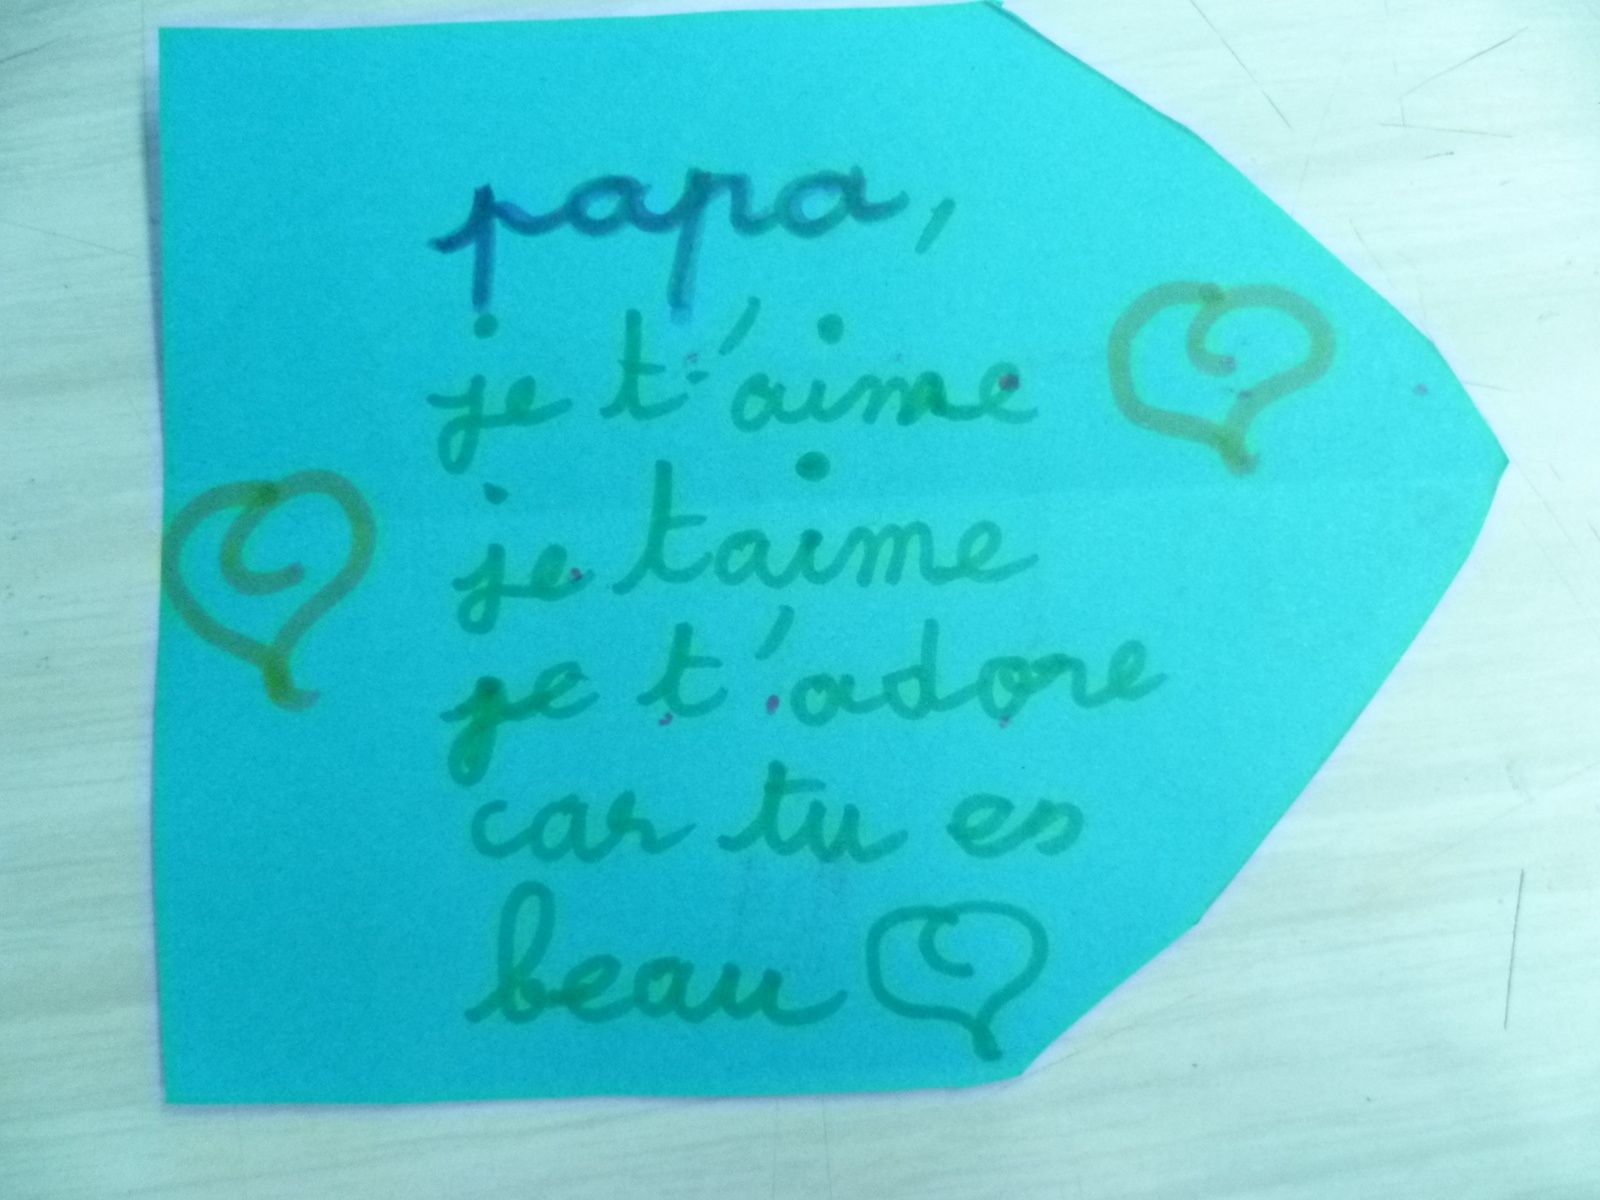 papa,
je t'aime
je taime
je t'adore
car tu es
beau